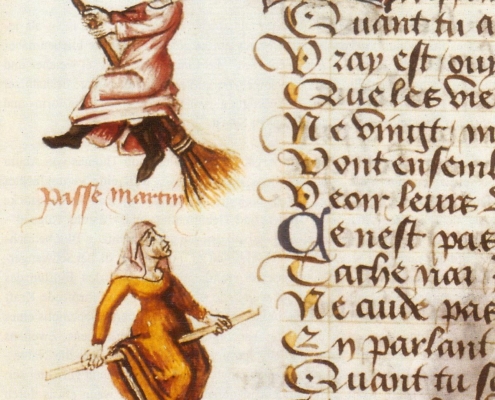 passe martin
Quant tu a
Vray est ouy
Que les vie
Ne vingt m
Vont ensemb
Veoir leurs
Ce nest pas
Tache nai
Ne cuide pas
En parlant
Quant tu s